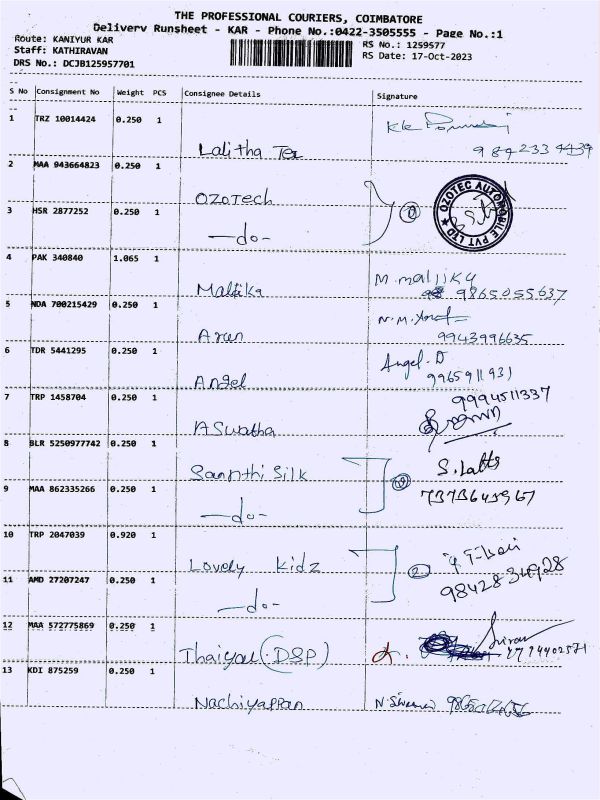 THE PROFESSIONAL COURIERS, COIMBATORE
Delivery Runsheet - KAR - Phone No.:0422-3505555 - Page No.:1
Route: KANIYUR KAR
Staff: KATHIRAVAN
DRS No.: DCJB125957701
RS No.: 1259577
RS Date: 17-Oct-2023
S No Consignment No Weight PCS Consignee Details Signature
1 TRZ 10014424 0.250 1
Lalitha
2 MAA 943664823 0.250 1
OZOTECH
OZOTEC AUTOMOBILE PVT LTD
3 HSR 2877252 0.250 1
-do-
4 PAK 340840 1.065 1
Mallika M. mallika
9865055637
5 NDA 700215429 0.250 1
Arun 9943996635
6 TDR 5441295 0.250 1 Angel. D
Angel 9965911931
7 TRP 1458704 0.250 1 9994511337
ASwatha
8 BLR 5250977742 0.250 1
Silk
9 MAA 862335266 0.250 1
-do- 7373645967
10 TRP 2047039 0.920 1
Lovely Kidz 2
11 AMD 27207247 0.250 1
-do-
12 MAA 572775869 0.250 1
(DSP)
13 KDI 875259 0.250 1
Nachiyappan